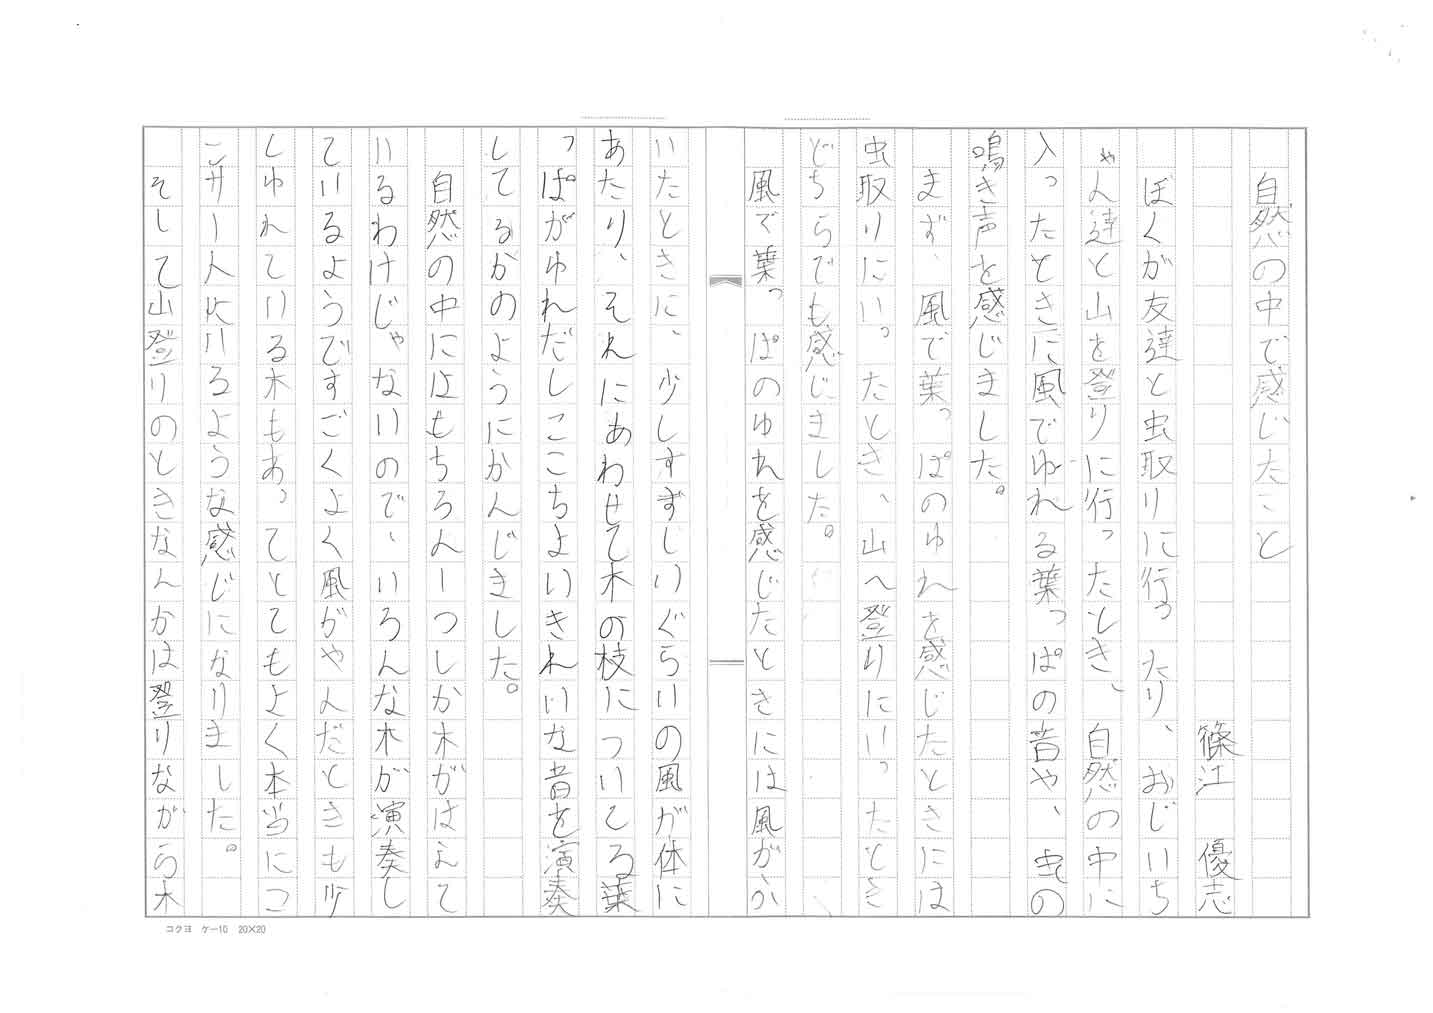 自然の中で感じたこと
篠江 優志
ぼくが友達と虫取りに行ったり、おじいち
ゃん達と山を登りに行ったとき、自然の中に
入ったときに風でゆれる葉っぱの音や、虫の
鳴き声を感じました。
まず、風で葉っぱのゆれを感じたときには
虫取りにいったとき、山へ登りにいったとき
どちらでも感じました。
風で葉っぱのゆれを感じたときには風が、か
いたときに、少しすずしいぐらいの風が体に
あたり、それにあわせて木の枝についてる葉
っぱがゆれだしここちよいきれいな音を演奏
してるかのようにかんじました。
自然の中にはもちろん一つしか木がはえて
いるわけじゃないので、いろんな木が演奏し
ているようですごくよく風がやんだときも少
しゆれている木もあってとてもよく本当にコ
ンサートにいるような感じになりました。
そして山登りのときなんかは登りながら木
コクヨ ケー10 20×20